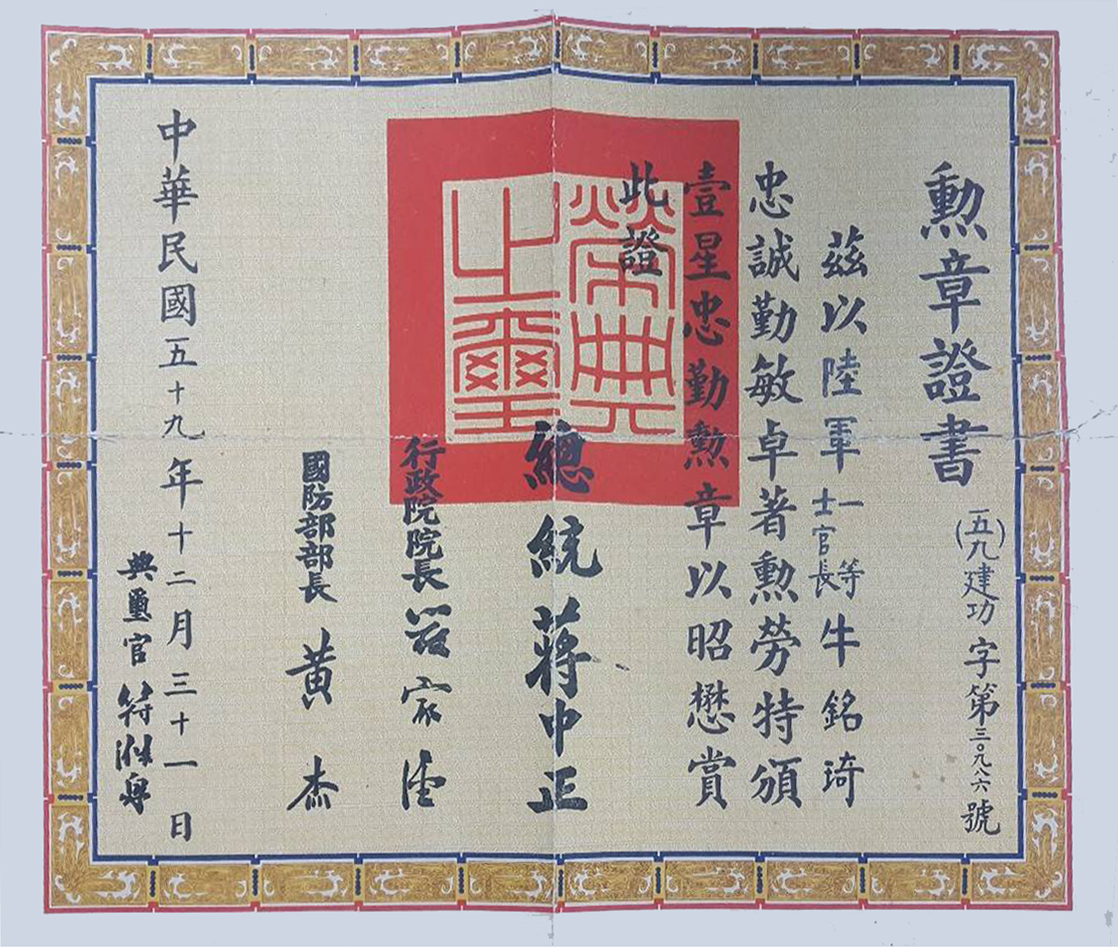 勳章證書
(五九)建功字第三〇九八六號
茲以陸軍一等士官長牛銘琦
忠誠勤敏卓著勳勞特頒
壹星忠勤勳章以昭懋賞
此證
榮典之璽
總統蔣中正
行政院院長嚴家淦
國防部部長黃杰
中華民國五十九年十二月三十一日
典璽官符